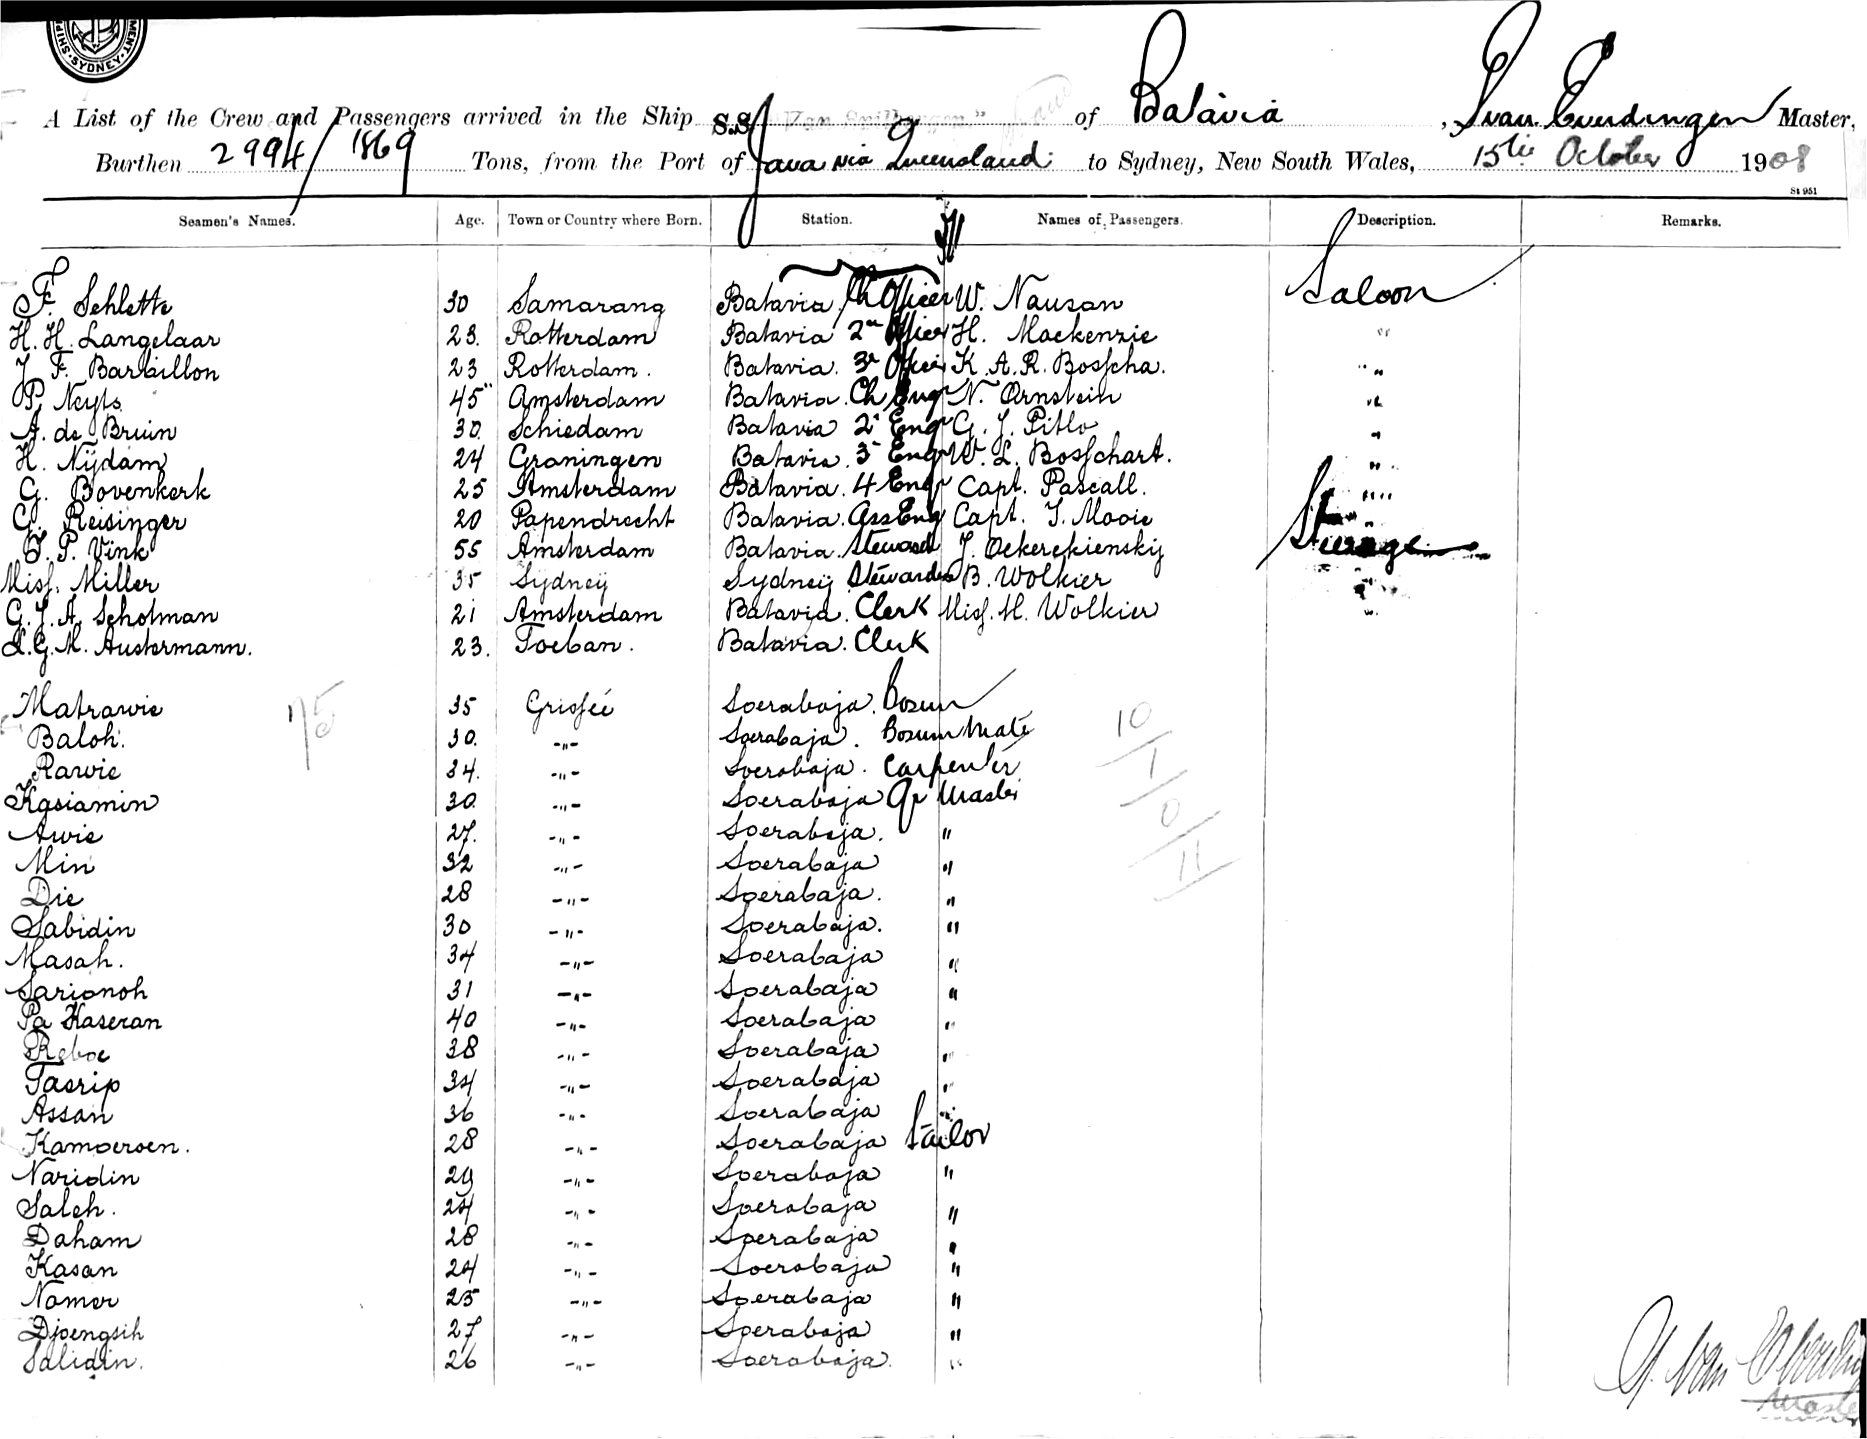 SHIP MENT · SYDNEY ·
A List of the Crew and Passengers arrived in the Ship S.S. "Van Spilbergen" of Batavia, van Everdingen Master,
Burthen 2994/1869 Tons, from the Port of Java via Queensland to Sydney, New South Wales, 15th October 1908
St 951
Seamen's Names. Age. Town or Country where Born. Station. Names of Passengers. Description. Remarks.
F. Schlette 30 Samarang Batavia Ch Officer W. Nauson Saloon
H. H. Langelaar 23. Rotterdam Batavia 2nd Officer H. Mackenzie "
J F. Barbillon 23 Rotterdam. Batavia. 3r Officer K. A. R. Bosscha. "
P. Neyts 45 Amsterdam Batavia. Ch Engr N. Ornstein "
A. de Bruin 30. Schiedam Batavia 2d Engr G. J. Pitlo "
H. Nijdam 24 Groningen Batavia. 3 Engr W. L. Bosschart. "
G. Bovenkerk 25 Amsterdam Batavia. 4 Engr Capt. Pascall. "
G. Reisinger 20 Papendrecht Batavia. Ass Eng Capt. T. Mooie Steerage
J. P. Vink 55 Amsterdam Batavia. Steward J.
Miss. Miller 35 Sydney Sydney Stewardess B. Wolkier "
G. J. A. Scholman 21 Amsterdam Batavia. Clerk Miss. M. Wolkier "
L. G. M. Austermann. 23. Toeban. Batavia. Clerk
Matrawie 35 Grissée Soerabaja. Bosun
Baloh. 30. -"- Soerabaja. Bosun Mate
Rawie 34. -"- Soerabaja. Carpenter
Kasiamin 30. -"- Soerabaja Qr Master
Awie 27. -"- Soerabaja. "
Min 32 -"- Soerabaja "
Die 28 -"- Soerabaja. "
Sabidin 30 -"- Soerabaja. "
Masah. 34 -"- Soerabaja "
Sarionoh 31 -"- Soerabaja "
Pa Kaseran 40 -"- Soerabaja "
Reboe 38 -"- Soerabaja "
Tasrip 34 -"- Soerabaja "
Assan 36 -"- Soerabaja "
Kamoeroen. 28 -"- Soerabaja Sailor
Naridin 29 -"- Soerabaja "
Saleh. 24 -"- Soerabaja "
Daham 28 -"- Soerabaja "
Kasan 24 -"- Soerabaja "
Nomor 25 -"- Soerabaja "
Djoengsih 27 -"- Soerabaja "
Salidin. 26 -"- Soerabaja. "
10/1/0/11
van Everdingen
Master